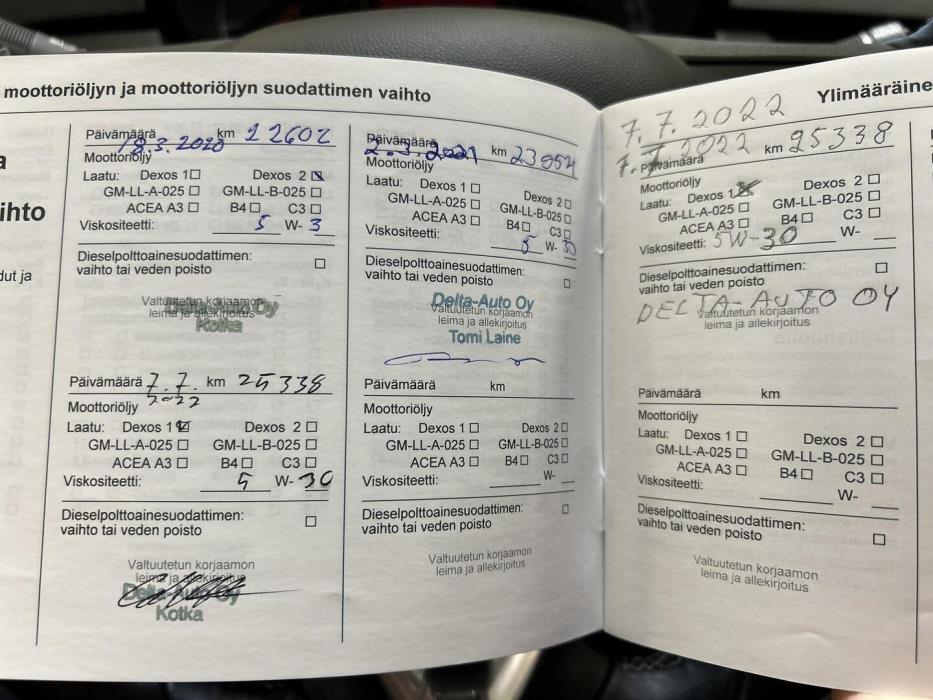 moottoriöljyn ja moottoriöljyn suodattimen vaihto
Päivämäärä 18.3.2020 km 12602
Moottoriöljy
Laatu: Dexos 1 ☐ Dexos 2 ☒
GM-LL-A-025 ☐ GM-LL-B-025 ☐
ACEA A3 ☐ B4 ☐ C3 ☐
Viskositeetti: 5 W- 3
Dieselpolttoainesuodattimen:
vaihto tai veden poisto ☐
Valtuutetun korjaamon
leima ja allekirjoitus
Delta-Auto Oy
Kotka
Päivämäärä 7.7. km 25338
2022
Moottoriöljy
Laatu: Dexos 1 ☑ Dexos 2 ☐
GM-LL-A-025 ☐ GM-LL-B-025 ☐
ACEA A3 ☐ B4 ☐ C3 ☐
Viskositeetti: 5 W- 30
Dieselpolttoainesuodattimen:
vaihto tai veden poisto ☐
Valtuutetun korjaamon
leima ja allekirjoitus
Delta-Auto Oy
Kotka
Päivämäärä
2.3.2021 km 23054
Moottoriöljy
Laatu: Dexos 1 ☐ Dexos 2 ☐
GM-LL-A-025 ☐ GM-LL-B-025 ☐
ACEA A3 ☐ B4 ☐ C3 ☐
Viskositeetti: 5 W- 30
Dieselpolttoainesuodattimen:
vaihto tai veden poisto ☐
Delta-Auto Oy
Valtuutetun korjaamon
leima ja allekirjoitus
Tomi Laine
Päivämäärä km
Moottoriöljy
Laatu: Dexos 1 ☐ Dexos 2 ☐
GM-LL-A-025 ☐ GM-LL-B-025 ☐
ACEA A3 ☐ B4 ☐ C3 ☐
Viskositeetti: W-
Dieselpolttoainesuodattimen:
vaihto tai veden poisto ☐
Valtuutetun korjaamon
leima ja allekirjoitus
ihto
dut ja
Ylimääräine
7.7.2022
7.7.2022
Päivämäärä km 25338
Moottoriöljy
Laatu: Dexos 1 ☒ Dexos 2 ☐
GM-LL-A-025 ☐ GM-LL-B-025 ☐
ACEA A3 ☐ B4 ☐ C3 ☐
Viskositeetti: 5W-30 W-
Dieselpolttoainesuodattimen:
vaihto tai veden poisto ☐
DELTA-AUTO OY
Valtuutetun korjaamon
leima ja allekirjoitus
Päivämäärä km
Moottoriöljy
Laatu: Dexos 1 ☐ Dexos 2 ☐
GM-LL-A-025 ☐ GM-LL-B-025 ☐
ACEA A3 ☐ B4 ☐ C3 ☐
Viskositeetti: W-
Dieselpolttoainesuodattimen:
vaihto tai veden poisto ☐
Valtuutetun korjaamon
leima ja allekirjoitus